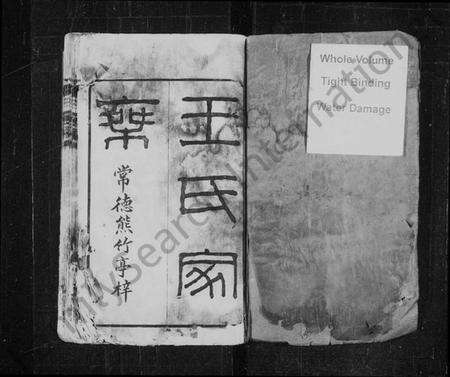 王氏家
乗
常德熊竹亭梓
Whole Volume
Tight Binding
Water Damage
MySearch International